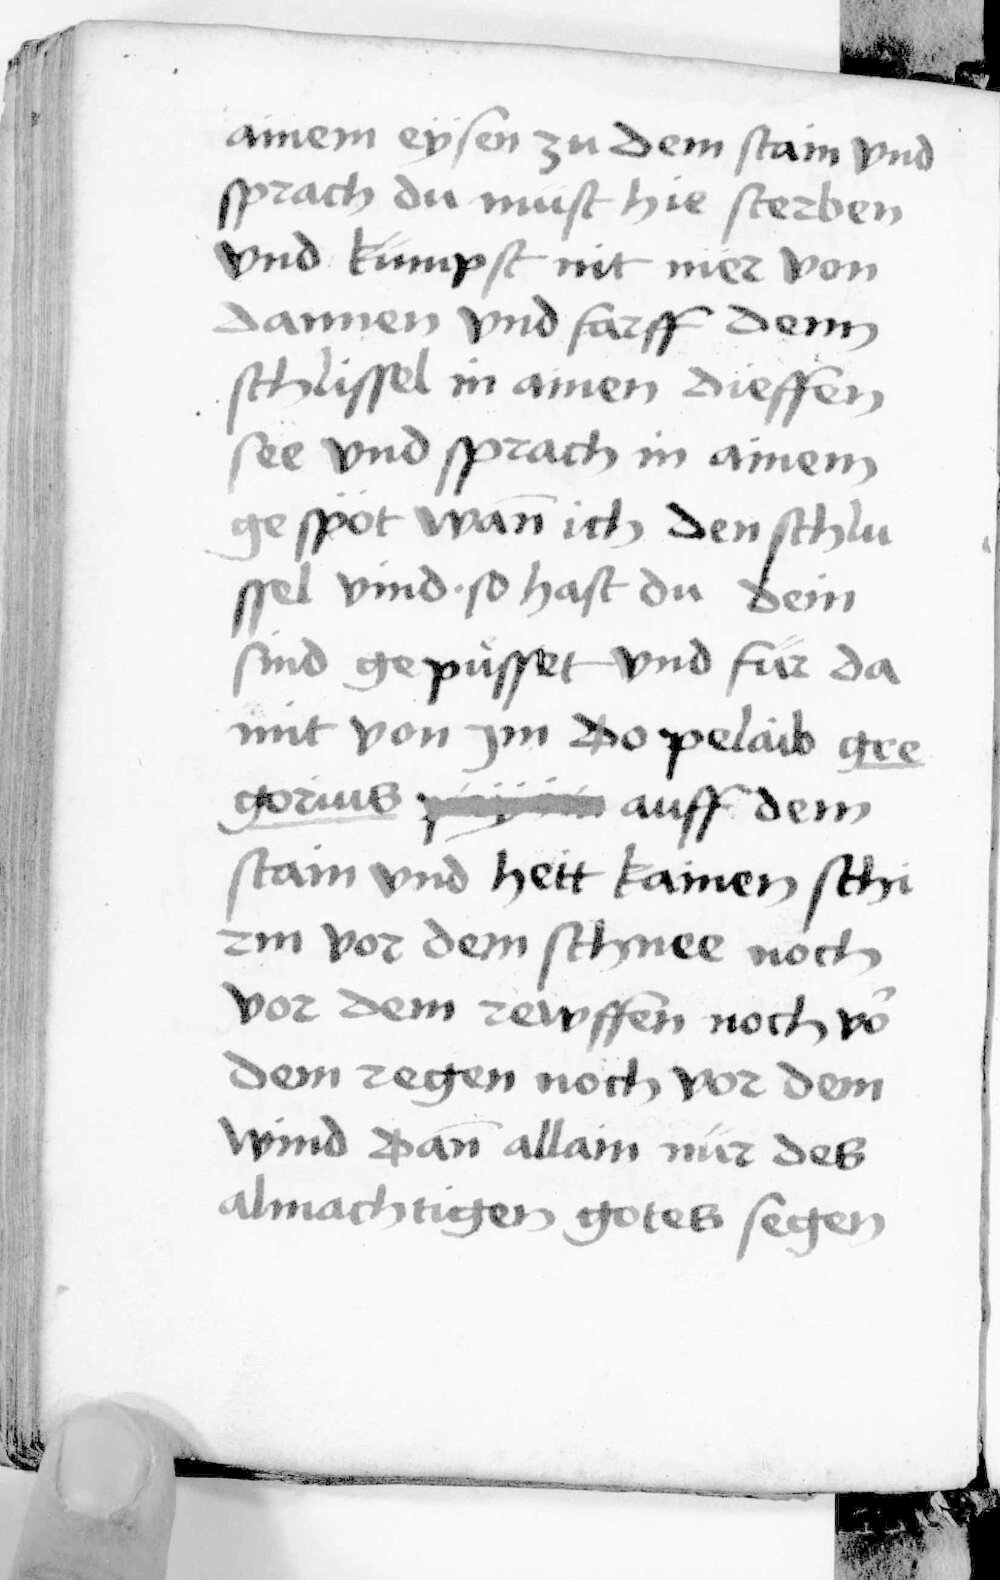 ainem eÿsen zu dem stain vnd
sprach du must hie sterben
vnd kumpst nit mer von
dannen vnd farff denn
schlissel in ainen dieffen
see vnd sprach in ainem
gespöt wan̄ ich den schlu
ssel vind · so hast du dein
sind gepüsset vnd für da
mit von jm Do pelaib gre
gorius auff dem
stain vnd hett kainen schi
rm vor dem schnee noch
vor dem rewffen noch vo᷑
dem regen noch vor dem
wind Dan̄ allain nür des
almachtigen gotes segen